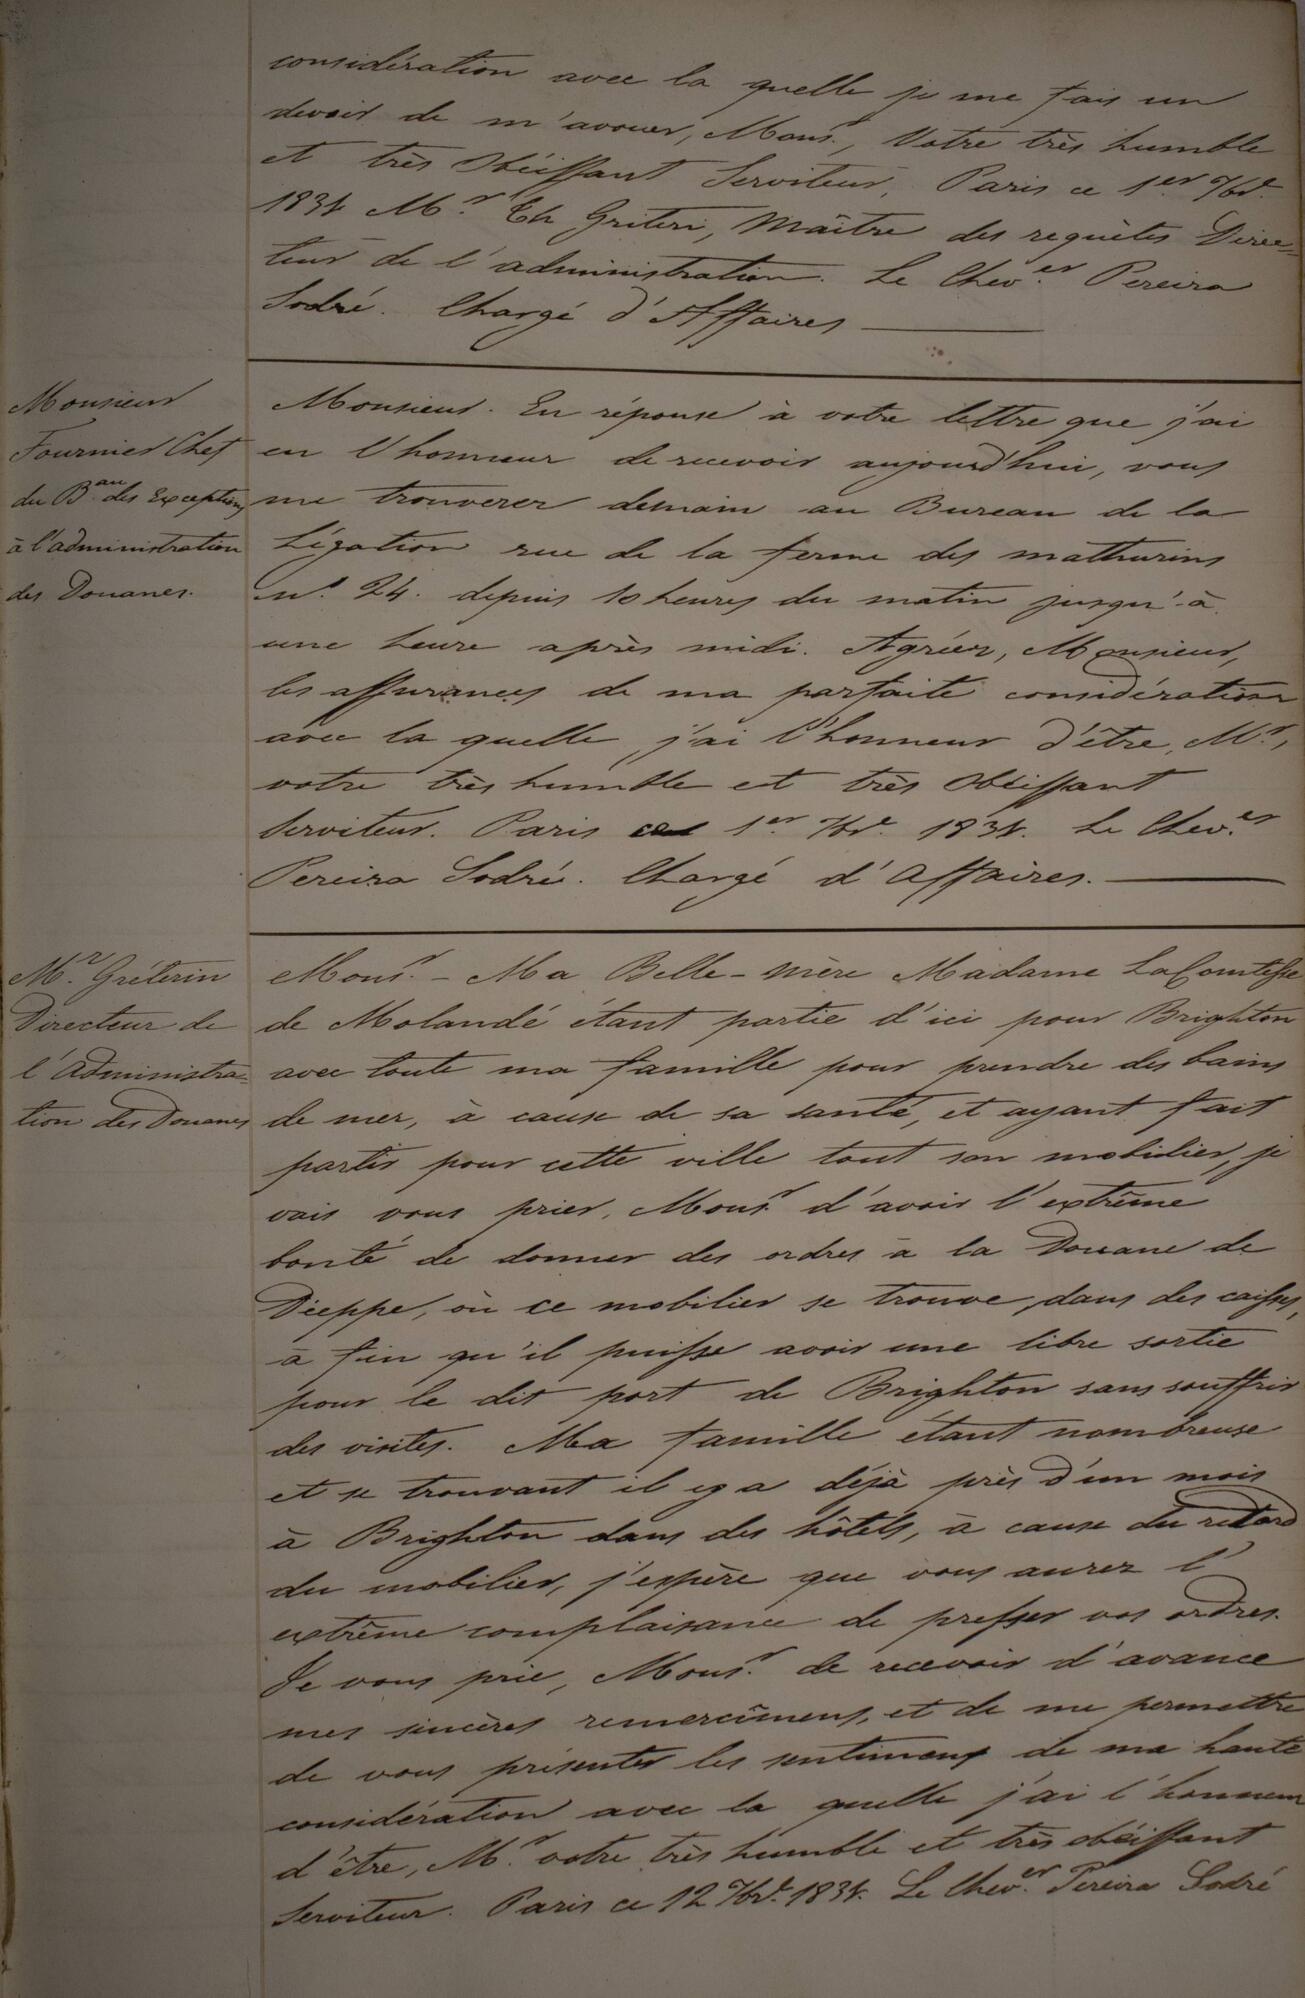 considération avec la quelle je me fais un
devoir de m'avouer, Mons.r, Votre très humble
et très Obéissant Serviteur, Paris ce 1.er 7br.e
1834 M.r Th Griteri, Maître des requêtes Direc=
teur de l'administration. Le Chev.er Pereira
Sodré. Chargé d'Affaires
Monsieur
Fournier Chef
du B.au des Exceptions
à l'administration
des Douanes.
Monsieur. En réponse à votre lettre que j'ai
eu l'honneur de recevoir aujourd'hui, vous
me trouverez demain au Bureau de la
Légation rue de la ferme des mathurins
n.o 24. depuis 10 heures du matin jusqu'-à
une heure après midi. Agréez, Monsieur,
les assurances de ma parfaite considération
avec la quelle j'ai l'honneur d'être, M.r,
votre très humble et très Obéissant
Serviteur. Paris ce 1.er 7br.e 1834. Le Chev.er
Pereira Sodré. Chargé d'Affaires.
M.r Gréterin
Directeur de
l'Administra=
tion des Douanes
Mons.r - Ma Belle-mère Madame La Comtesse
de Molandé étant partie d'ici pour Brighton
avec toute ma famille pour prendre des bains
de mer, à cause de sa santé, et ayant fait
partir pour cette ville tout son mobilier, je
vais vous prier, Mons.r d'avoir l'extrême
bonté de donner des ordres à la Douane de
Dieppe, où ce mobilier se trouve, dans des caisses,
à fin qu'il puisse avoir une libre sortie
pour le dit port de Brighton sans souffrir
des visites. Ma famille étant nombreuse
et se trouvant il y a déjà près d'un mois
à Brighton dans des hôtels, à cause du retard
du mobilier, j'espère que vous aurez l'
extrême complaisance de presser vos ordres.
Je vous prie, Mons.r de recevoir d'avance
mes sincères remercîmens, et de me permettre
de vous présenter les sentimens de ma haute
considération avec la quelle j'ai l'honneur
d'être, M.r votre très humble et très obéissant
Serviteur. Paris ce 12 7br.e 1834. Le Chev.er Pereira Sodré